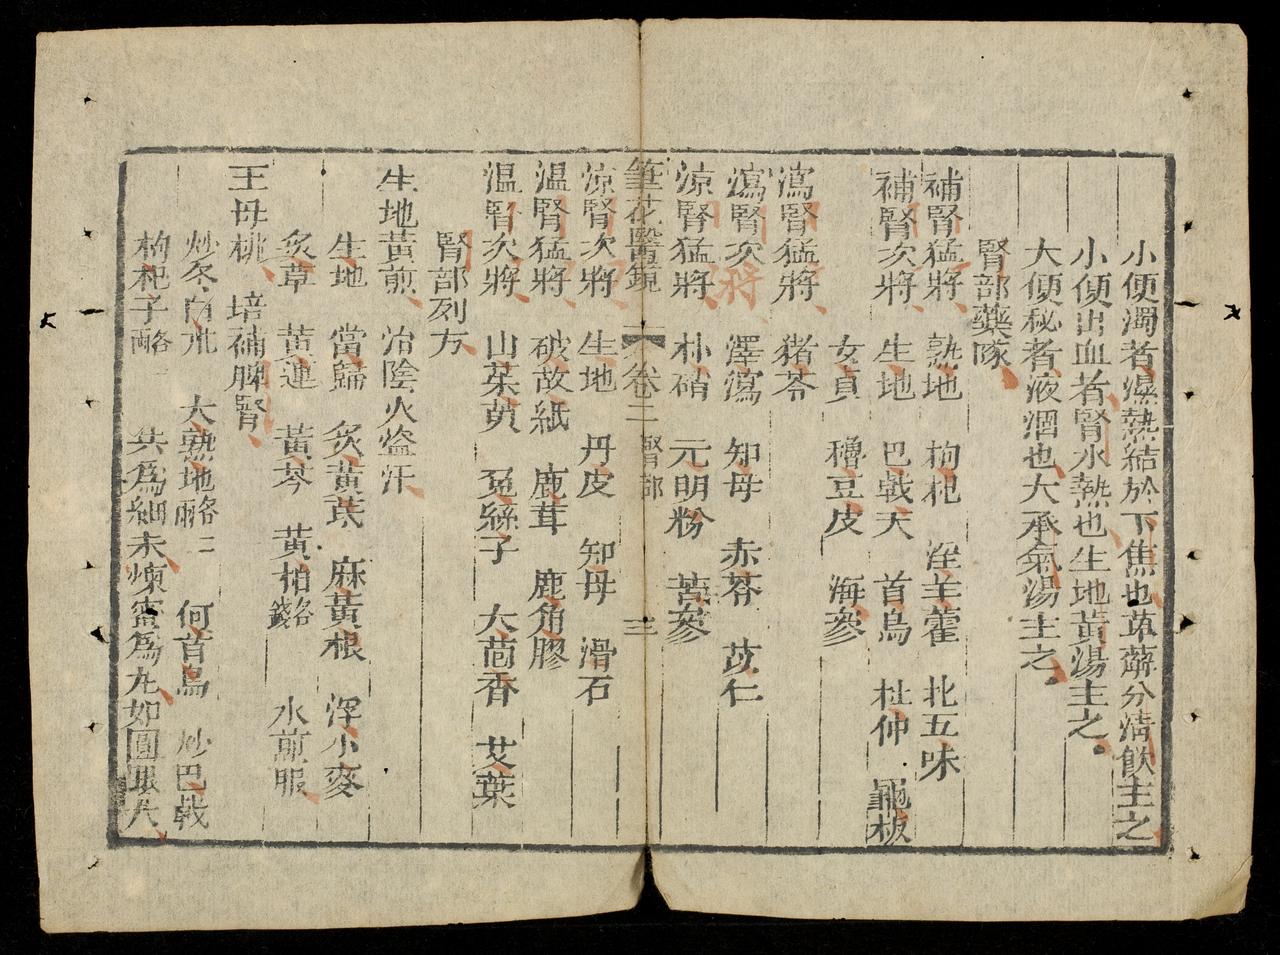 小便濁者濕熱結於下焦也萆薢分清飲主之
小便出血者腎水熱也生地黃湯主之
大便秘者液涸也大承氣湯主之
腎部藥隊
補腎猛將 熟地 枸杞 淫羊藿 北五味
補腎次將 生地 巴戟天 首烏 杜仲 龜板
女貞 穭豆皮 海參
瀉腎猛將 猪苓
瀉腎次將 澤瀉 知母 赤苓 苡仁
涼腎猛將 朴硝 元明粉 苦參
筆花醫鏡 卷二 腎部 三
涼腎次將 生地 丹皮 知母 滑石
溫腎猛將 破故紙 鹿茸 鹿角膠
溫腎次將 山茱萸 兔絲子 大茴香 艾葉
腎部列方
生地黃煎 治陰火盜汗
生地 當歸 炙黃芪 麻黃根 浮小麥
炙草 黃連 黃芩 黃柏各錢 水煎服
王母桃 培補脾腎
炒冬白朮 大熟地各二兩 何首烏 炒巴戟
枸杞子各一兩 共為細末煉蜜為丸如圓眼大